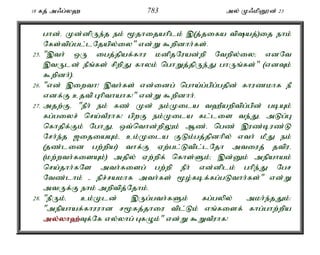 18 கத் அஃப்லஹ 783 அல் முஃமினூன் 23
பான். முன்னிருந்த நம் மூதாதையரிடம் இ(த்தகைய விஷயத்)தை நாம்
கேள்விப்பட்டதேயில்லை" என்று கூறினார்கள்.
25. "இவர் ஒரு பைத்தியக்கார மனிதரேயன்றி வேறில்லை; எனவே
இவருடன் நீங்கள் சிறிது காலம் பொறுத்திருந்து பாருங்கள்" (எனவும்
கூறினர்).
26. "என் இறைவா! இவர்கள் என்னைப் பொய்ப்பிப்பதின் காரணமாக நீ
எனக்கு உதவி புரிவாயாக!" என்று கூறினார்.
27. அதற்கு, "நீர் நம் கண் முன் நம்முடைய வஹீயறிவிப்பின் படியும்
கப்பலைச் செய்வீராக! பிறகு நம்முடைய கட்டளை வந்து, அடுப்பு
கொதிக்கும் பொழுது, ஒவ்வொன்றிலும் ஆண் பெண் இரண்டிரண்டு
சேர்ந்த ஜதையையும், உம்முடைய குடும்பத்தினரில் எவர் மீது நம்
(தண்டனை பற்றிய) வாக்கு ஏற்பட்டுவிட்டதோ அவரைத் தவிர,
(மற்றவர்களையும்) அதில் ஏற்றிக் கொள்ளும்; இன்னும் அநியாயம்
செய்தார்களே அவர்களைப் பற்றி நீர் என்னிடம் பரிந்து பேச
வேண்டாம் - நிச்சயமாக அவர்கள் மூழ்கடிக்கப்படுவார்கள்" என்று
அவருக்கு நாம் அறிவித்தோம்.
28. "நீரும், உம்முடன் இருப்பவர்களும் கப்பலில் அமர்ந்ததும்:
"அநியாயக்காரரான சமூகத்தாரை விட்டும் எங்களைக் காப்பாற்றிய
அல்லாஹ்வுக்கே எல்லாப் புகழும்" என்று கூறுவீராக!